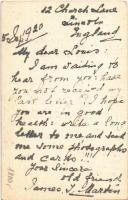 12 Church Lane
Lincoln
England
1920
My dear Louis:
I am waiting to
hear from you have
you not received my
last letter. I hope
you are in good
health: write a long
letter to me and send
me some photographs
and cards!!!
Your Sincere
Friend
James T. Martin